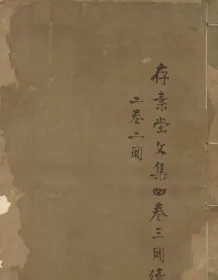 存素堂文集四卷三開續
二卷二開